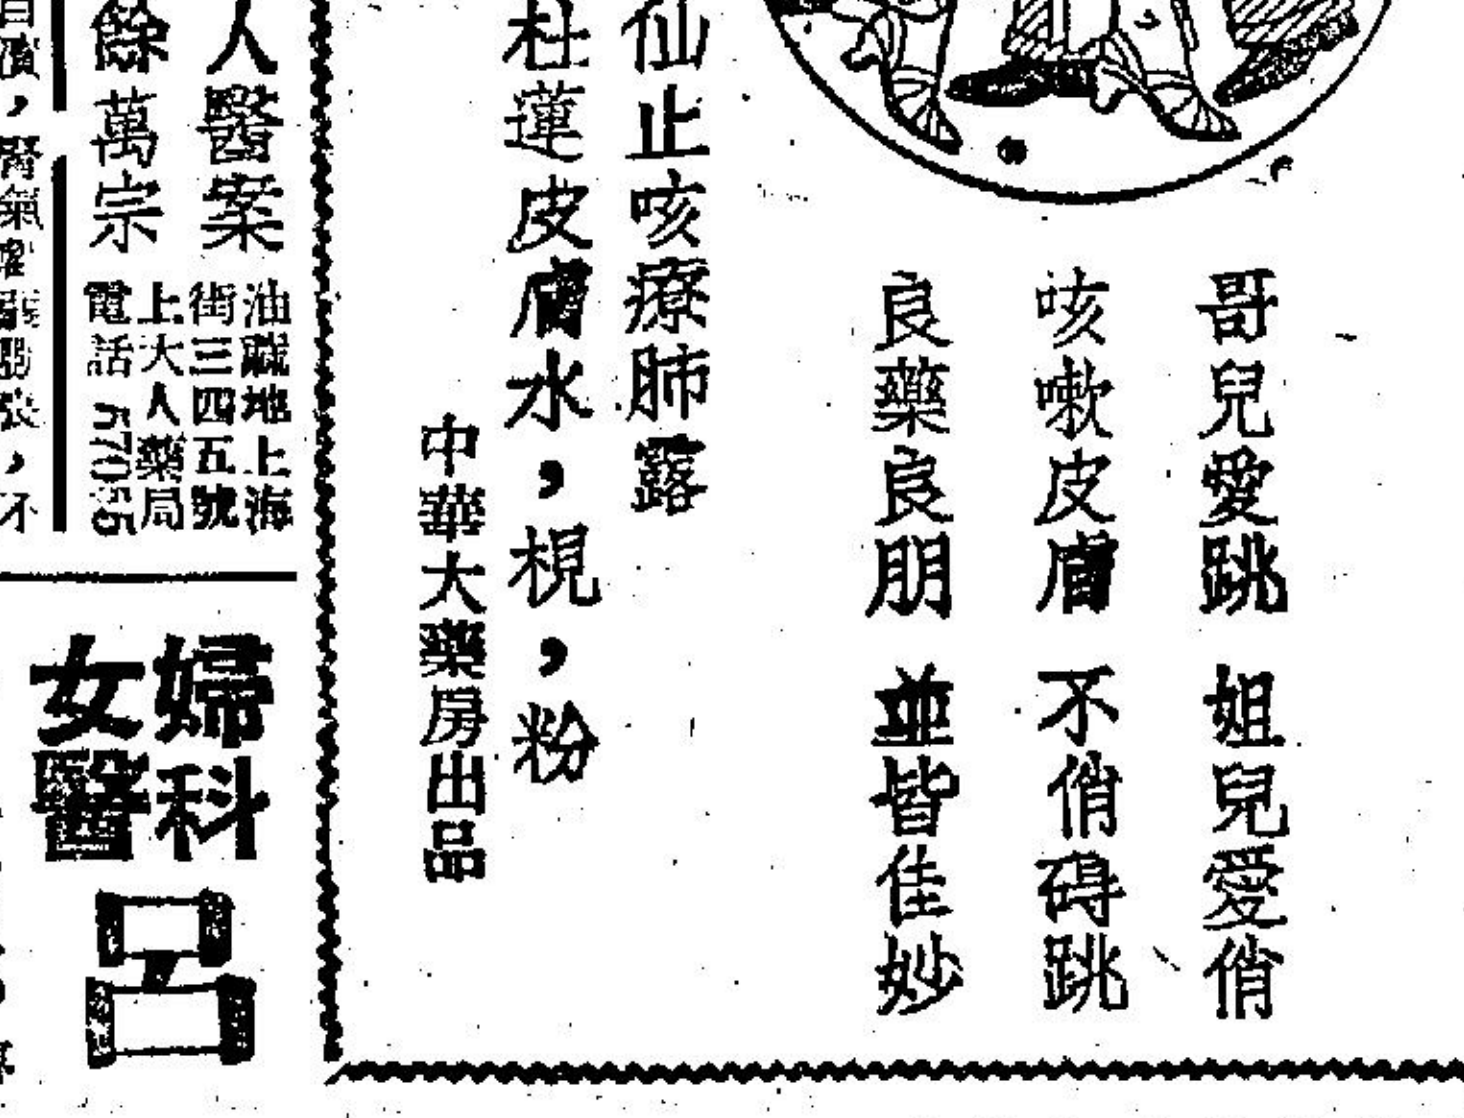 哥兒愛跳 姐兒愛俏
咳嗽皮膚 不俏碍跳
良藥良朋 並皆佳妙
仙止咳療肺露
杜蓮皮膚水，梘，粉
中華大藥房出品
人醫案
餘萬宗
油蔴地上海
街三四五號
上大人藥局
電話57055
婦科
女醫
呂